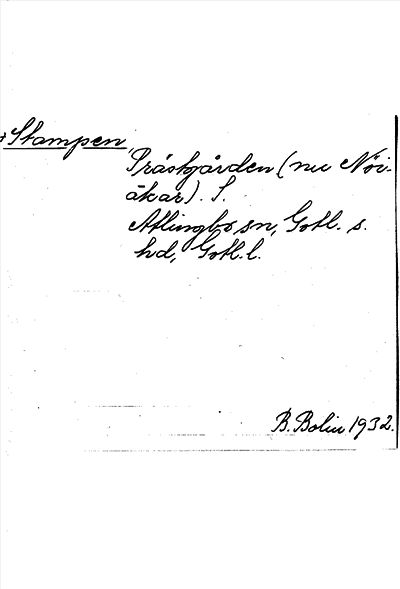 +Stampen,
Prästgården (nu Nöi-
åkar). S.
Atlingbo sn, Gotl. s.
hd, Gotl. l.
B. Bolin 1932.